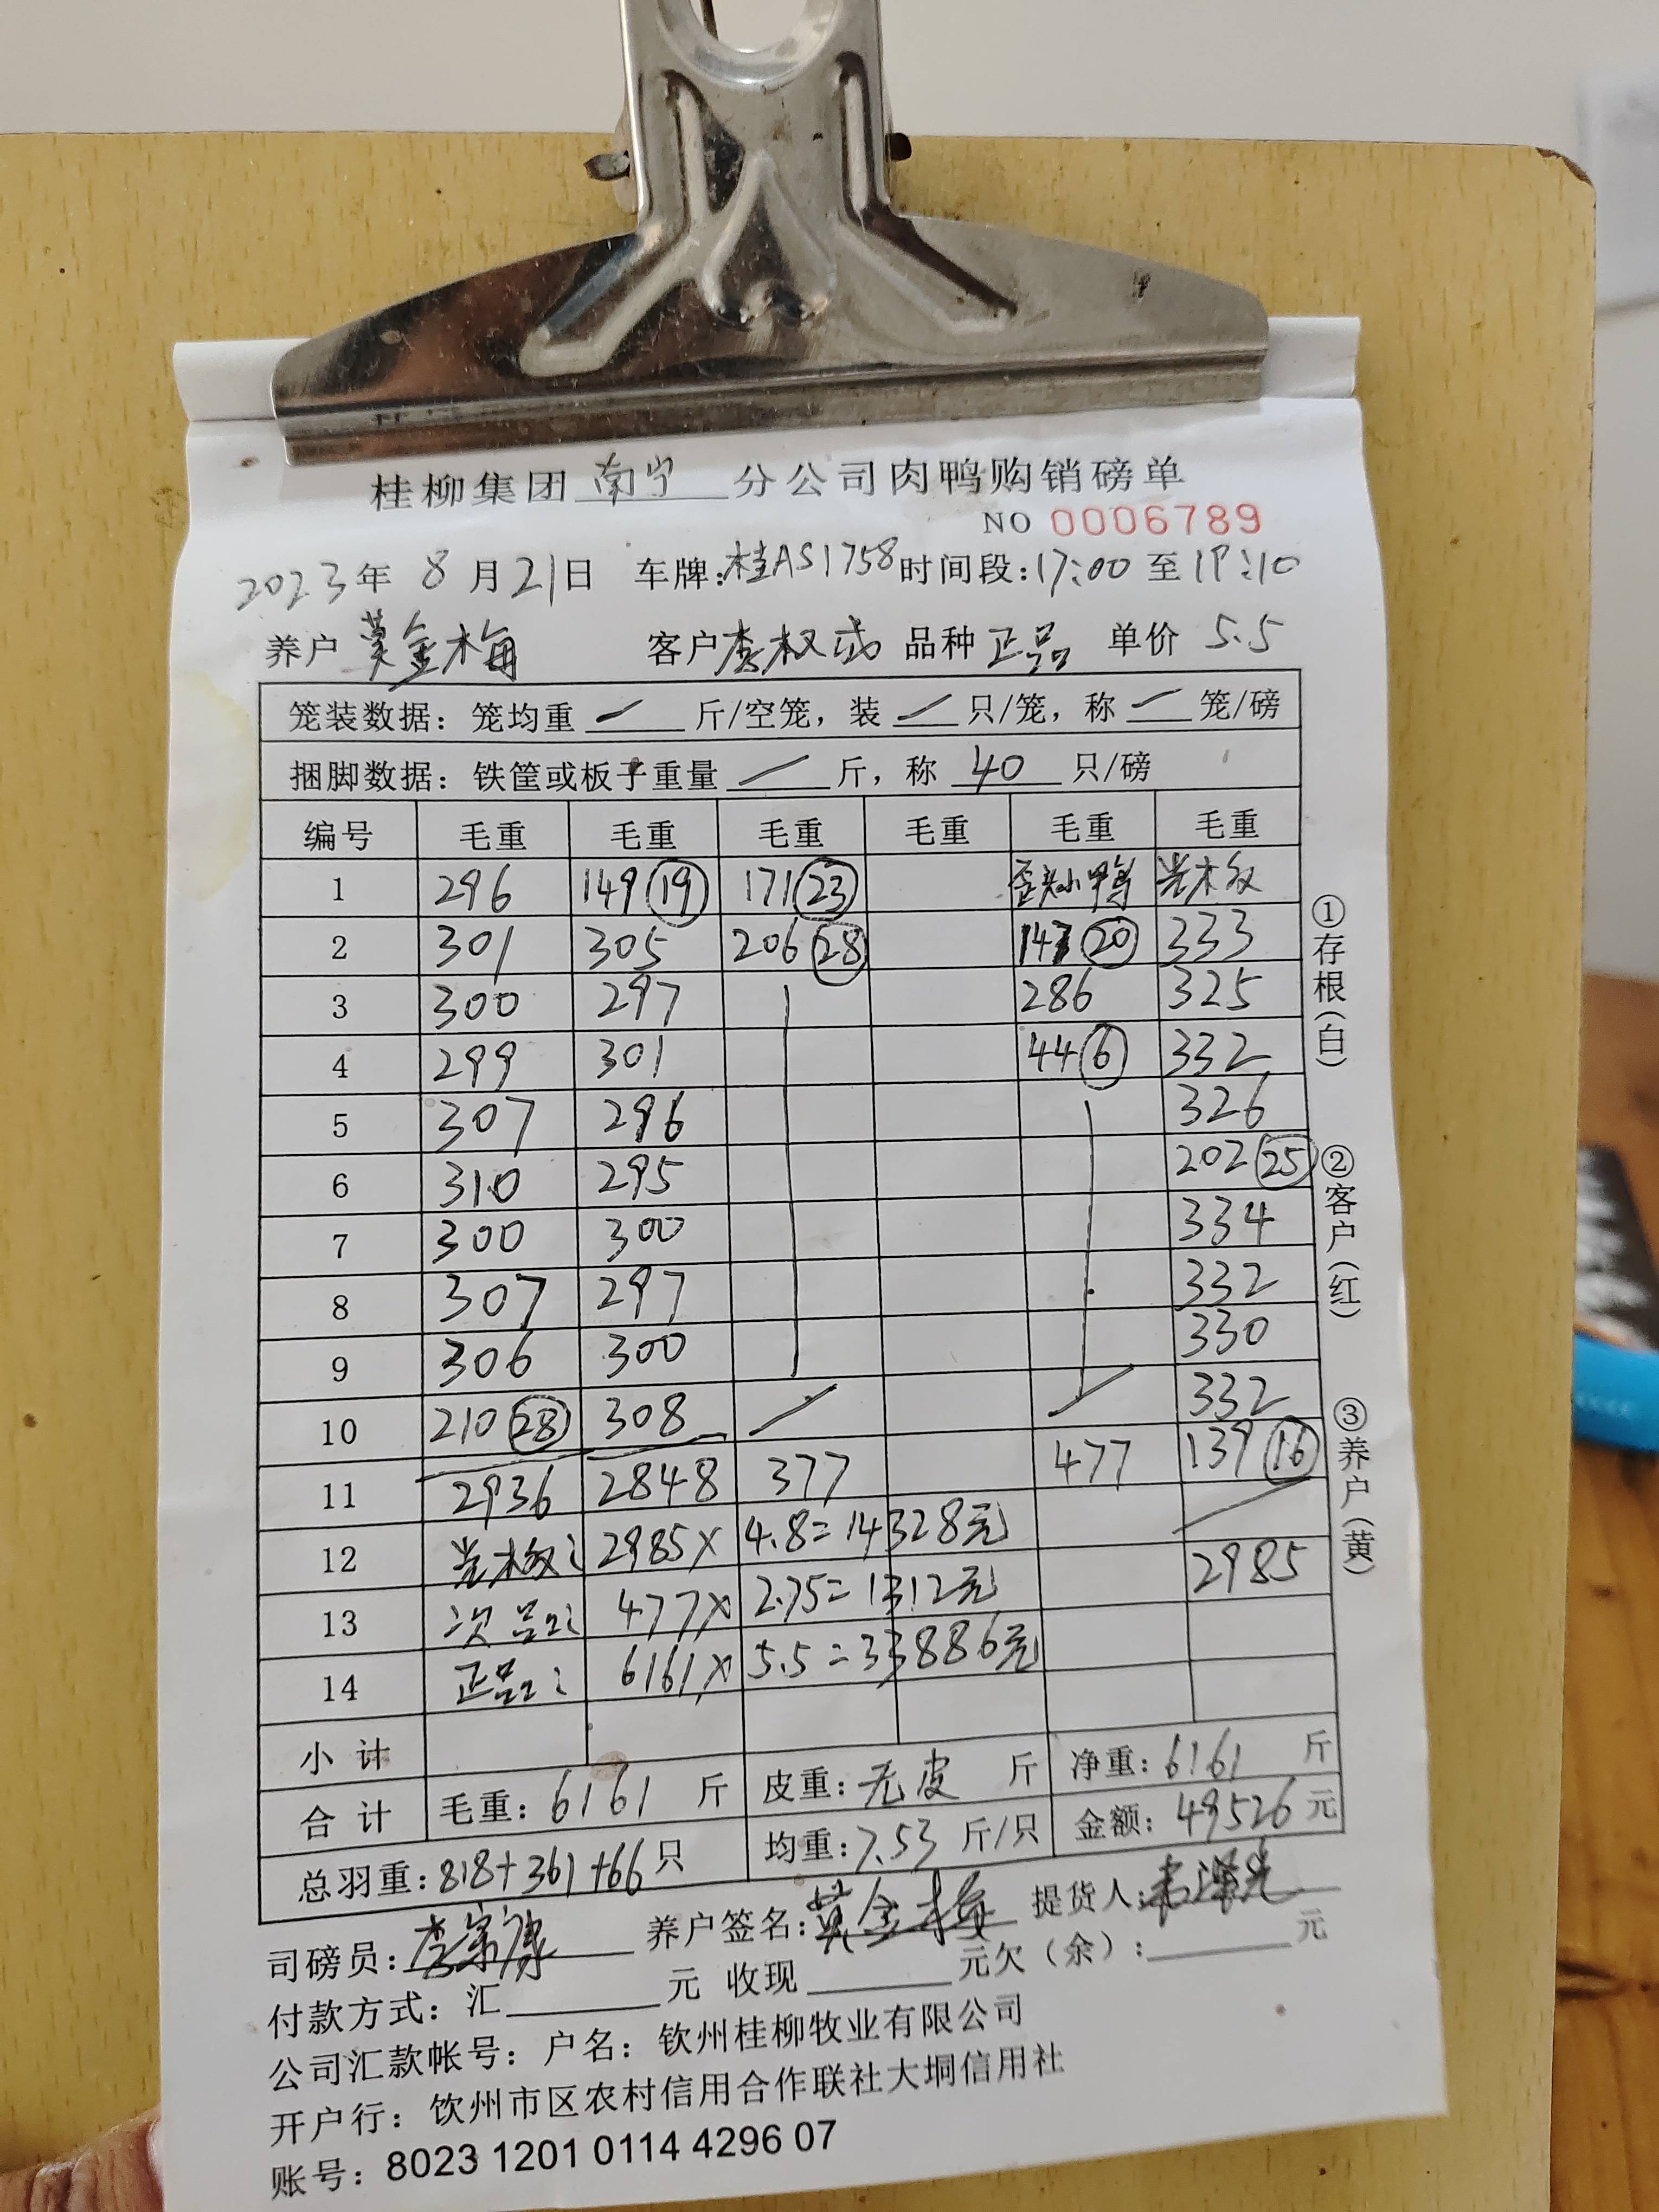 桂柳集团南宁分公司肉鸭购销磅单
NO 0006789
2023年 8月21日 车牌:桂AS1758 时间段:17:00 至 19:10
养户 黄金梅 客户 李权 品种 正品 单价 5.5
笼装数据：笼均重 — 斤/空笼，装 — 只/笼，称 — 笼/磅
捆脚数据：铁筐或板子重量 — 斤，称 40 只/磅
编号 毛重 毛重 毛重 毛重 毛重 毛重
1 296 149(19) 171(23) 歪头小鸭 光木
2 301 305 206(28) 147(20) 333
3 300 297 286 325
4 299 301 44(6) 332
5 307 296 326
6 310 295 202(25)
7 300 300 334
8 307 297 332
9 306 300 330
10 210(28) 308 332
11 2936 2848 377 477 139(16)
12 光木: 2985×4.8=14328元
13 次品: 477×2.75=1312元 2985
14 正品: 6161×5.5=33886元
小计
合计 毛重：6161 斤 皮重：无皮 斤 净重：6161 斤
总羽重：818+361+66只 均重：7.53 斤/只 金额：49526元
司磅员：李宗康 养户签名：黄金梅 提货人：
付款方式：汇 元 收现 元欠（余）： 元
公司汇款帐号：户名：钦州桂柳牧业有限公司
开户行：钦州市区农村信用合作联社大垌信用社
账号：8023 1201 0114 4296 07
①存根(白)
②客户(红)
③养户(黄)